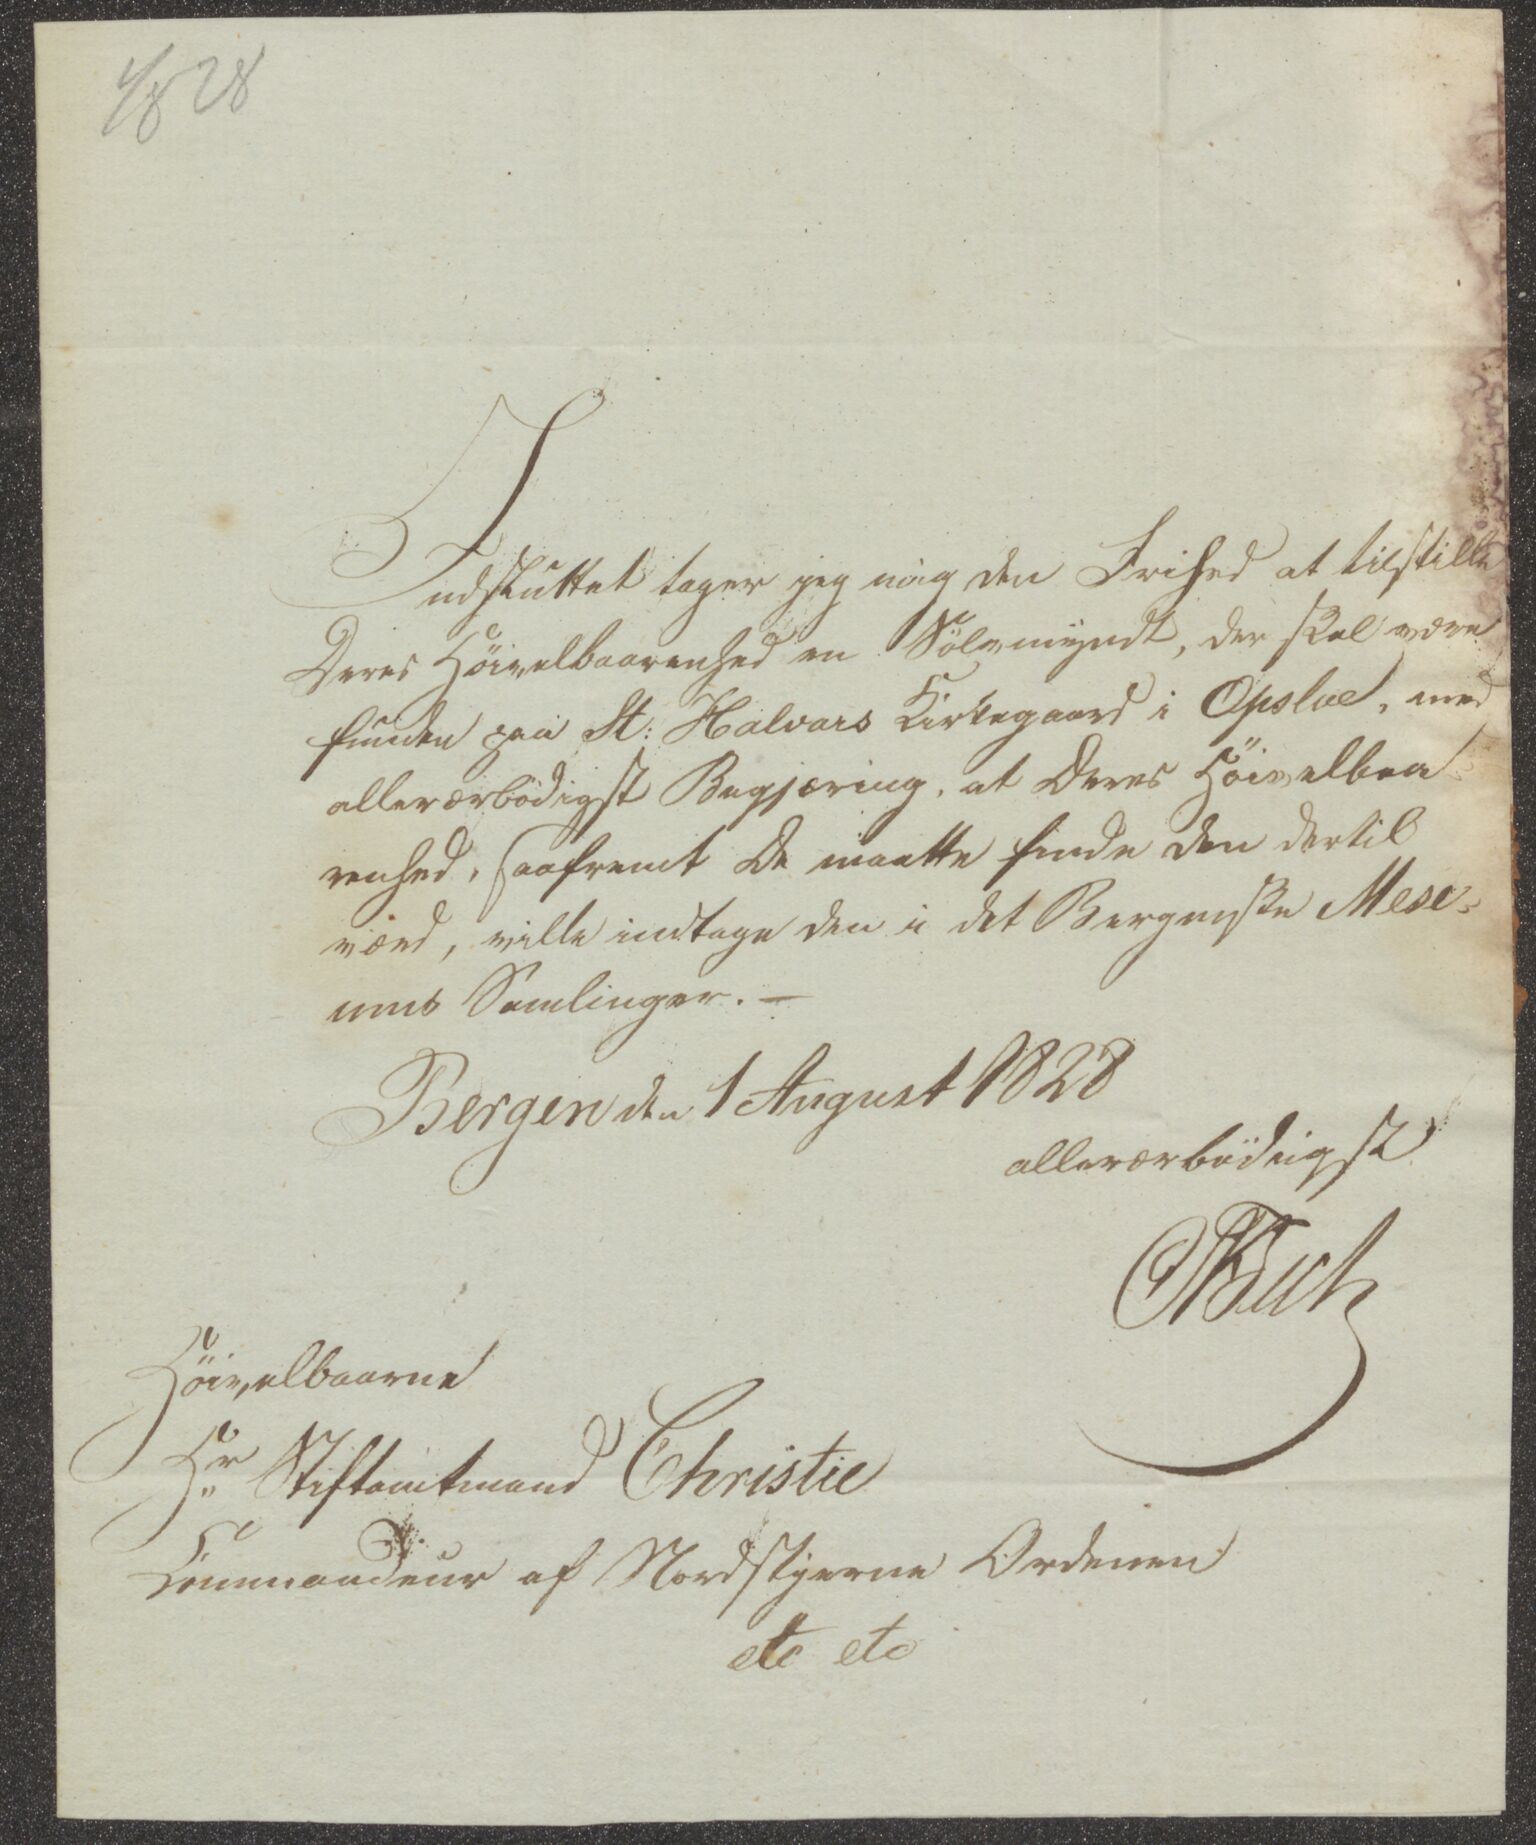 1/8 28
Indsluttet tager jeg mig den Frihed at tilstille
Deres Höivelbaarenhed en Sölvmyndt, der skal være
funden paa St: Halvars Kirkegaard i Opsloe, med
allerærbödigst Begjæring, at Deres Höivelbaa
renhed, saafremt De maatte finde den dertil
værd, ville indtage den i det Bergenske Muse-
ums Samlinger. —
Bergen den 1 August 1828
allerærbödigst
Höivelbaarne
Hr Stiftamtmand Christie
Commandeur af Nordstjerne Ordenen
etc etc